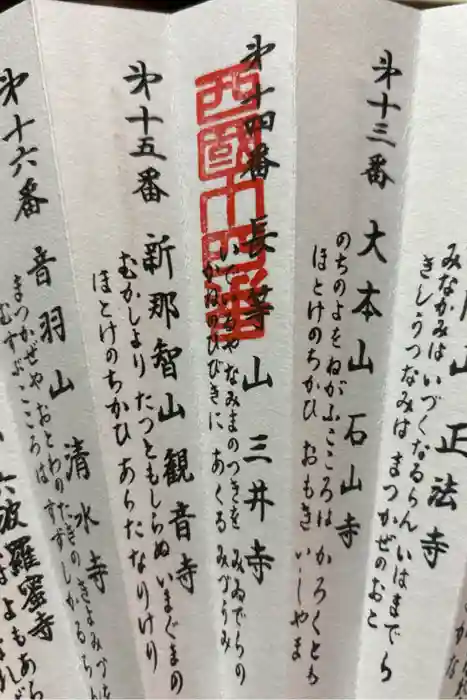 正法寺
みなかみは いづくなるらん いはまでら
きしうつなみは まつかぜのおと
第十三番 大本山 石山寺
のちのよを ねがふこころは かろくとも
ほとけのちかひ おもき いしやま
第十四番 長等山 三井寺
いで いるや なみまのつきを みゐでらの
かねのひびきに あくる みづうみ
西國十四番
第十五番 新那智山 觀音寺
むかしより たつともしらぬ いまぐまの
ほとけのちかひ あらたなりけり
第十六番 音羽山 清水寺
まつかぜや おとわのたきの きよみづを
むすぶ こころは すずしかるらん
六波羅蜜寺